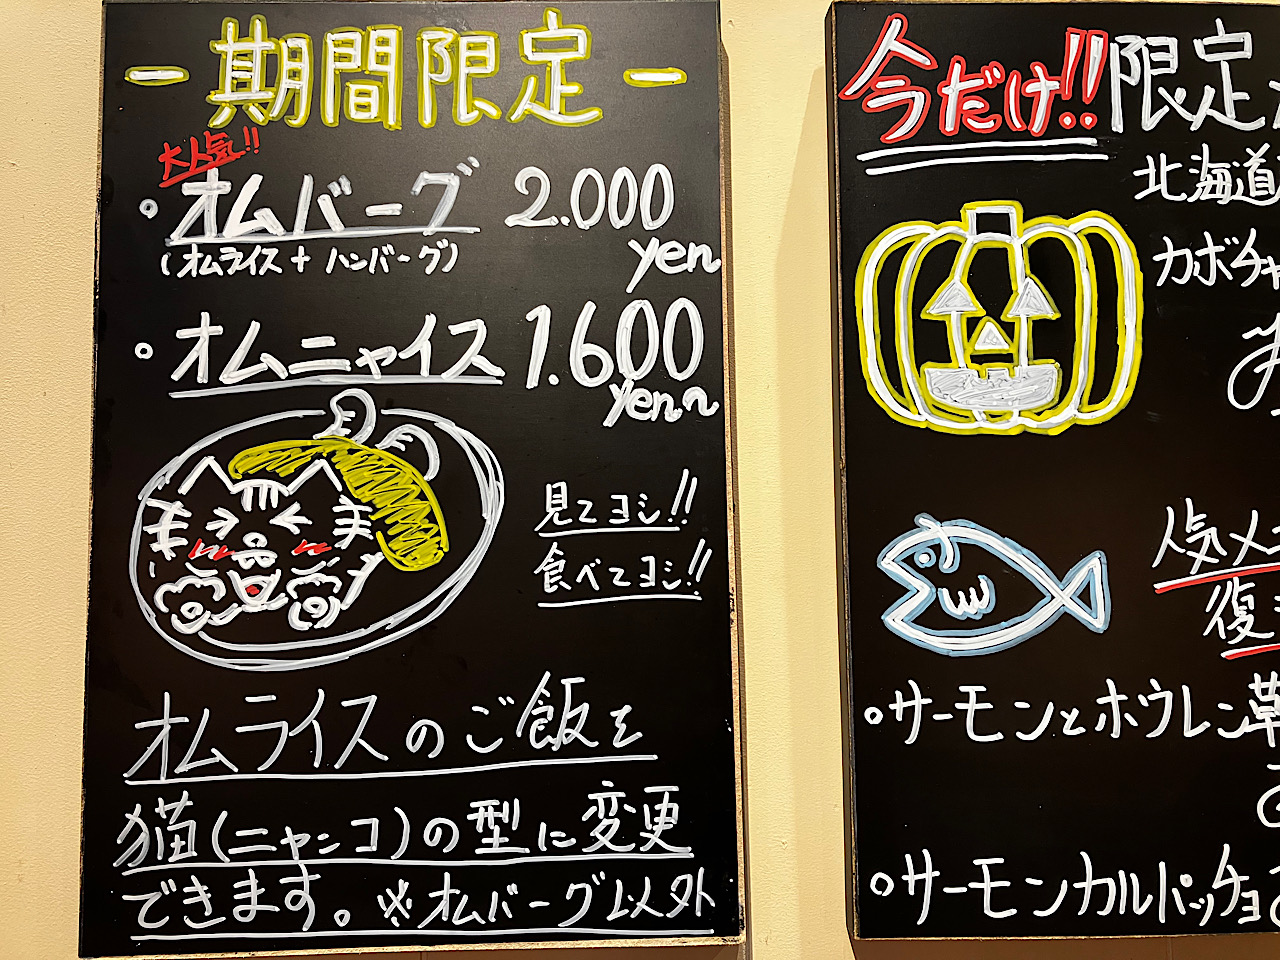 －期間限定－
大人気!!
・オムバーグ 2.000
(オムライス＋ハンバーグ) yen
・オムニャイス 1.600
yen〜
見てヨシ!!
食べてヨシ!!
オムライスのご飯を
猫(ニャンコ)の型に変更
できます。※オムバーグ以外
今だけ!!限定
北海道
カボチャ
人気メニ
復
・サーモンとホウレン草
・サーモンカルパッチョ